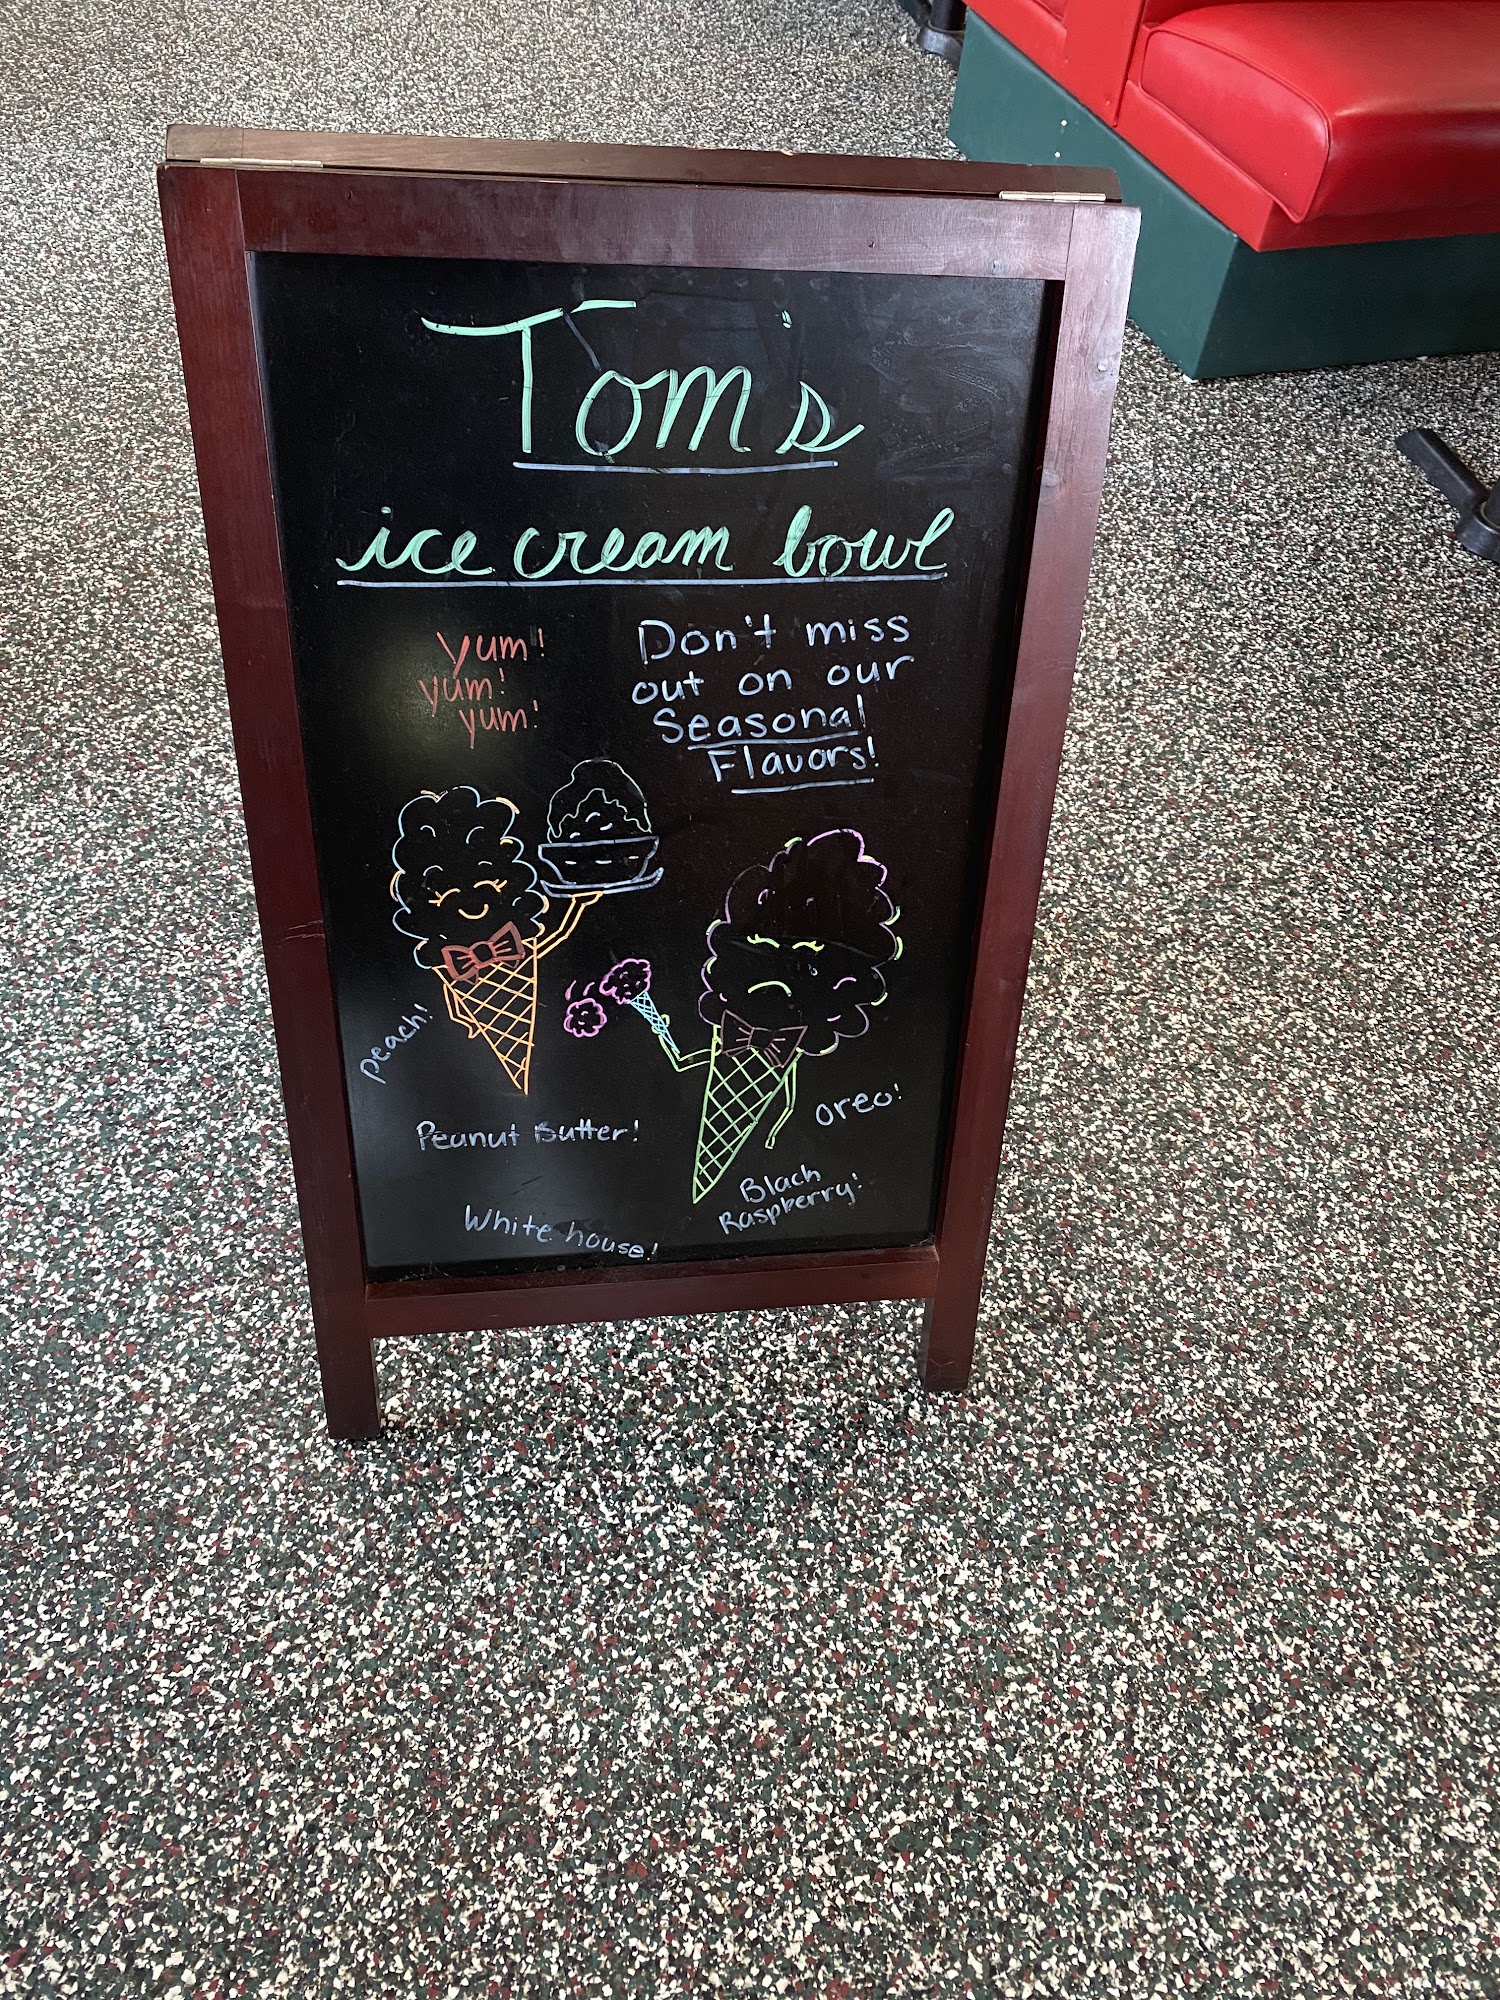 Tom's
ice cream bowl
Yum!
yum!
yum!
Don't miss
out on our
Seasonal
Flavors!
peach!
oreo!
Peanut Butter!
Black
Raspberry!
White house!